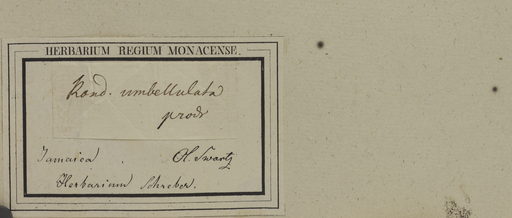 HERBARIUM REGIUM MONACENSE.
Rond. umbellulata
prodr
Jamaica. Ol. Swartz
Herbarium Schreber.